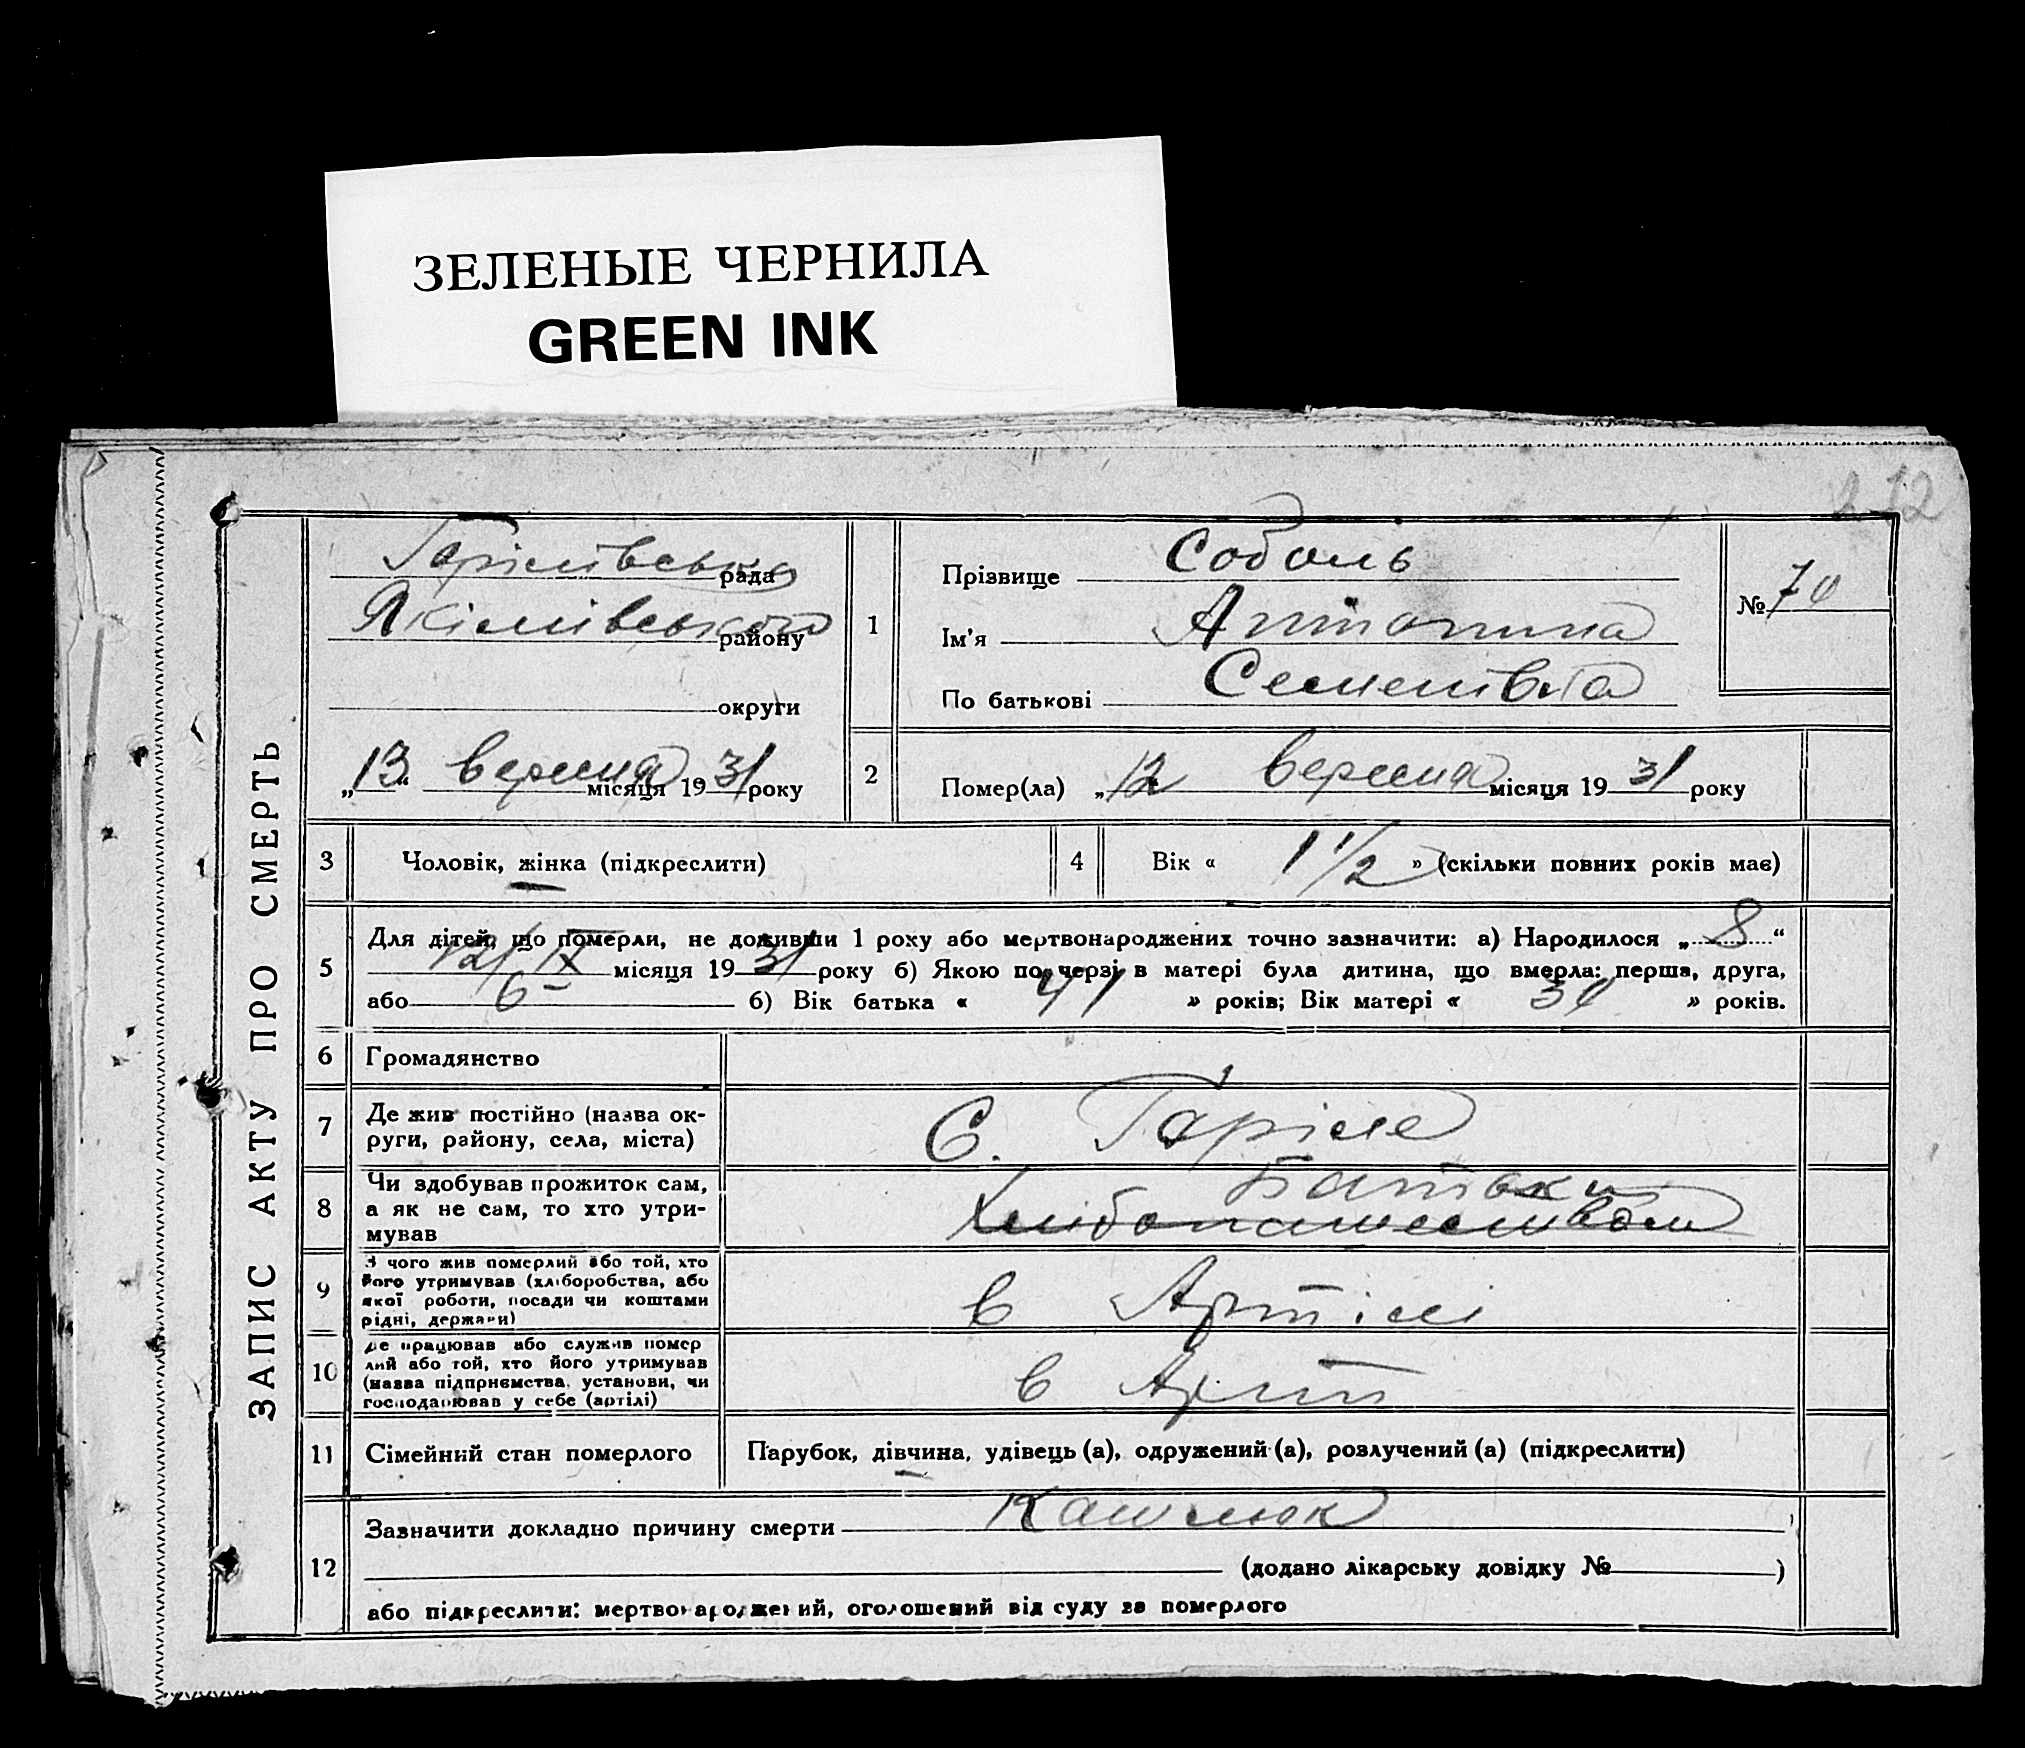 ЗЕЛЕНЫЕ ЧЕРНИЛА
GREEN INK
212
ЗАПИС АКТУ ПРО СМЕРТЬ
Горілівська рада
Якімівського району
округи
„13“ вересня місяця 1931 року
1
Прізвище Соболь
Ім'я Антонина
По батькові Семенівна
№ 70
2
Помер(ла) „12 вересня місяця 1931 року
3 Чоловік, жінка (підкреслити)
4 Вік « 1 1/2 » (скільки повних років має)
5
Для дітей, що померли, не доживши 1 року або мертвонароджених точно зазначити: а) Народилося „ 8 “
12/IX місяця 1931 року б) Якою по черзі в матері була дитина, що вмерла: перша, друга,
або 6 б) Вік батька « 41 » років; Вік матері « 30 » років.
6 Громадянство
7 Де жив постійно (назва ок-
руги, району, села, міста)
С. Горіле
8 Чи здобував прожиток сам,
а як не сам, то хто утри-
мував
Батьки
9 З чого жив померлий або той, хто
його утримував (хліборобства, або
якої роботи, посади чи коштами
рідні, держави)
в Артілі
10 Де працював або служив помер
лий або той, хто його утримував
(назва підприємства, установи, чи
господарював у себе (артілі)
в Арт
11 Сімейний стан померлого
Парубок, дівчина, удівець (а), одружений (а), розлучений (а) (підкреслити)
12
Зазначити докладно причину смерти Кашлюк
(додано лікарську довідку № )
або підкреслити: мертвонароджений, оголошений від суду за померлого